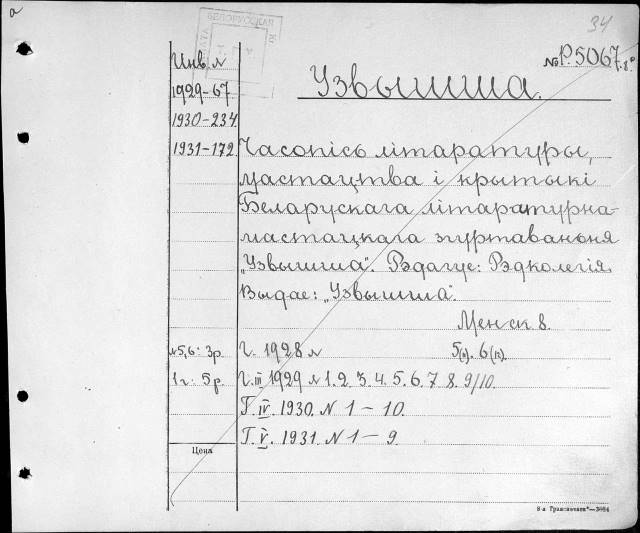 a
34
БЕЛОРУССКАЯ
№ Р.5067.8°
Узвышша.
Инв. №
1929-67
1930-234
1931-172
Часопісь літаратуры,
мастацтва і крытыкі
Беларускага літаратурна-
мастацкага згуртаваньня
„Узвышша“. Рэдагуе: Рэдколегія.
Выдае: „Узвышша“.
Менск 8.
№5,6: 3р.
Г. 1928 № 5(к). 6(к).
1 г: 5 р.
Г. III 1929 № 1. 2. 3. 4. 5. 6. 7 8. 9/10.
Г. IV. 1930. № 1 – 10.
Г. V. 1931. № 1 – 9.
Цена